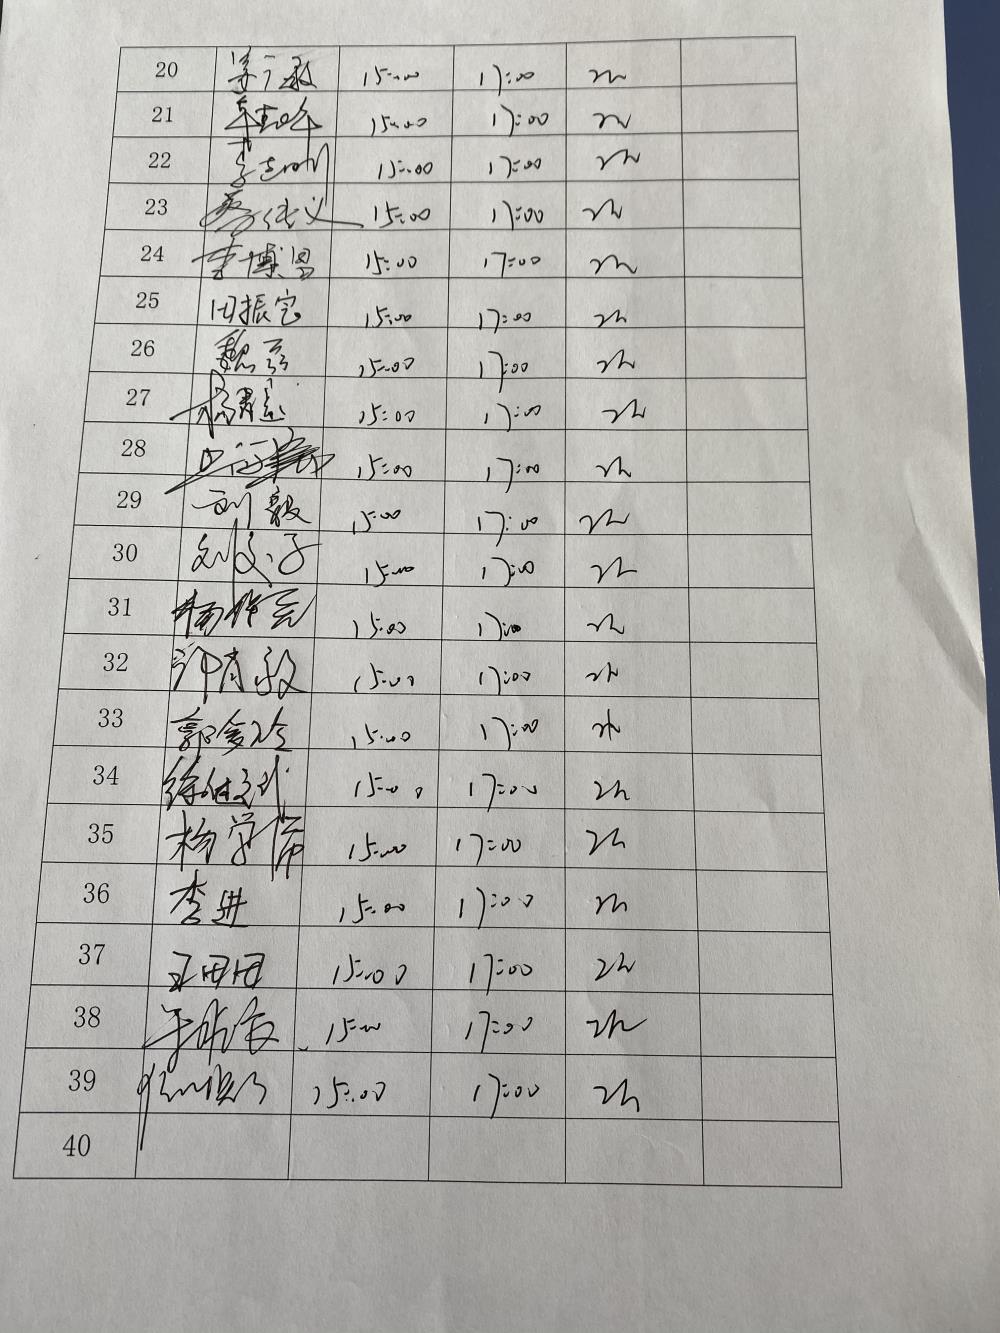 20 15:00 17:00 2h
21 15:00 17:00 2h
22 李志明 15:00 17:00 2h
23 15:00 17:00 2h
24 李博恩 15:00 17:00 2h
25 田振宽 15:00 17:00 2h
26 魏磊 15:00 17:00 2h
27 15:00 17:00 2h
28 15:00 17:00 2h
29 刘毅 15:00 17:00 2h
30 刘文子 15:00 17:00 2h
31 15:00 17:00 2h
32 15:00 17:00 2h
33 15:00 17:00 2h
34 15:00 17:00 2h
35 杨学儒 15:00 17:00 2h
36 李进 15:00 17:00 2h
37 王田田 15:00 17:00 2h
38 15:00 17:00 2h
39 15:00 17:00 2h
40